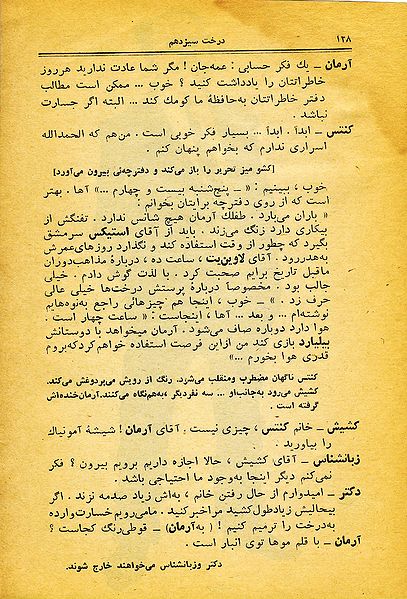 ۱۲۸
درخت سیزدهم
آرمان ــ یك فکر حسابی : عمه‌جان ! مگر شما عادت ندارید هرروز
خاطراتتان را یادداشت کنید ؟ خوب ... ممکن است مطالب
دفتر خاطراتتان به‌حافظهٔ ما کومك کند ... البته اگر جسارت
نباشد .
کنتس ــ ابداً . ابداً ... بسیار فکر خوبی است . من‌هم که الحمدالله
اسراری ندارم که بخواهم پنهان کنم .
[کشو میز تحریر را باز می‌کند و دفترچه‌ئی بیرون می‌آورد]
خوب ، ببینیم : « ــ پنج‌شنبه بیست و چهارم ...» آها . بهتر
است که از روی دفترچه برایتان بخوانم :
« باران می‌بارد . طفلك آرمان هیچ شانس ندارد . تفنگش از
بیکاری دارد زنگ می‌زند . باید از آقای استیکس سرمشق
بگیرد که چطور از وقت استفاده کند و نگذارد روزهای‌عمرش
به‌هدررود . آقای لاوین‌یت ، ساعت ده ، دربارهٔ مذاهب‌دوران
ماقبل تاریخ برایم صحبت کرد . با لذت گوش دادم . خیلی
جالب بود . مخصوصاً دربارهٔ پرستش درخت‌ها خیلی عالی
حرف زد . » ــ خوب ، اینجا هم چیزهائی راجع به‌نوه‌هایم
نوشته‌ام ... و بعد ... آها ، اینجاست : « ساعت چهار است .
هوا دارد دوباره صاف می‌شود . آرمان میخواهد با دوستانش
بیلیارد بازی کند من ازاین فرصت استفاده خواهم‌کردکه‌بروم
قدری هوا بخورم ...»
کنتس ناگهان مضطرب ومنقلب می‌شود. رنگ از رویش می‌پردوغش می‌کند.
کشیش می‌رود به‌جانب‌او ... سه نفردیگر ، به‌هم‌نگاه می‌کنند.آرمان‌خنده‌اش
گرفته است .
کشیش ــ خانم کنتس ، چیزی نیست . آقای آرمان ! شیشهٔ آمونیاك
را بیاورید .
زبانشناس ــ آقای کشیش ، حالا اجازه داریم برویم بیرون ؟ فکر
نمی‌کنم دیگر اینجا به‌وجود ما احتیاجی باشد .
دکتر ــ امیدوارم از حال رفتن خانم ، به‌اش زیاد صدمه نزند . اگر
بیحالیش زیادطول‌کشید مراخبرکنید . مامی‌رویم خسارت‌وارده
به‌درخت را ترمیم کنیم ! ( به‌آرمان) ــ قوطی‌رنگ کجاست ؟
آرمان ــ با قلم موها توی انبار است .
دکتر وزبانشناس می‌خواهند خارج شوند.